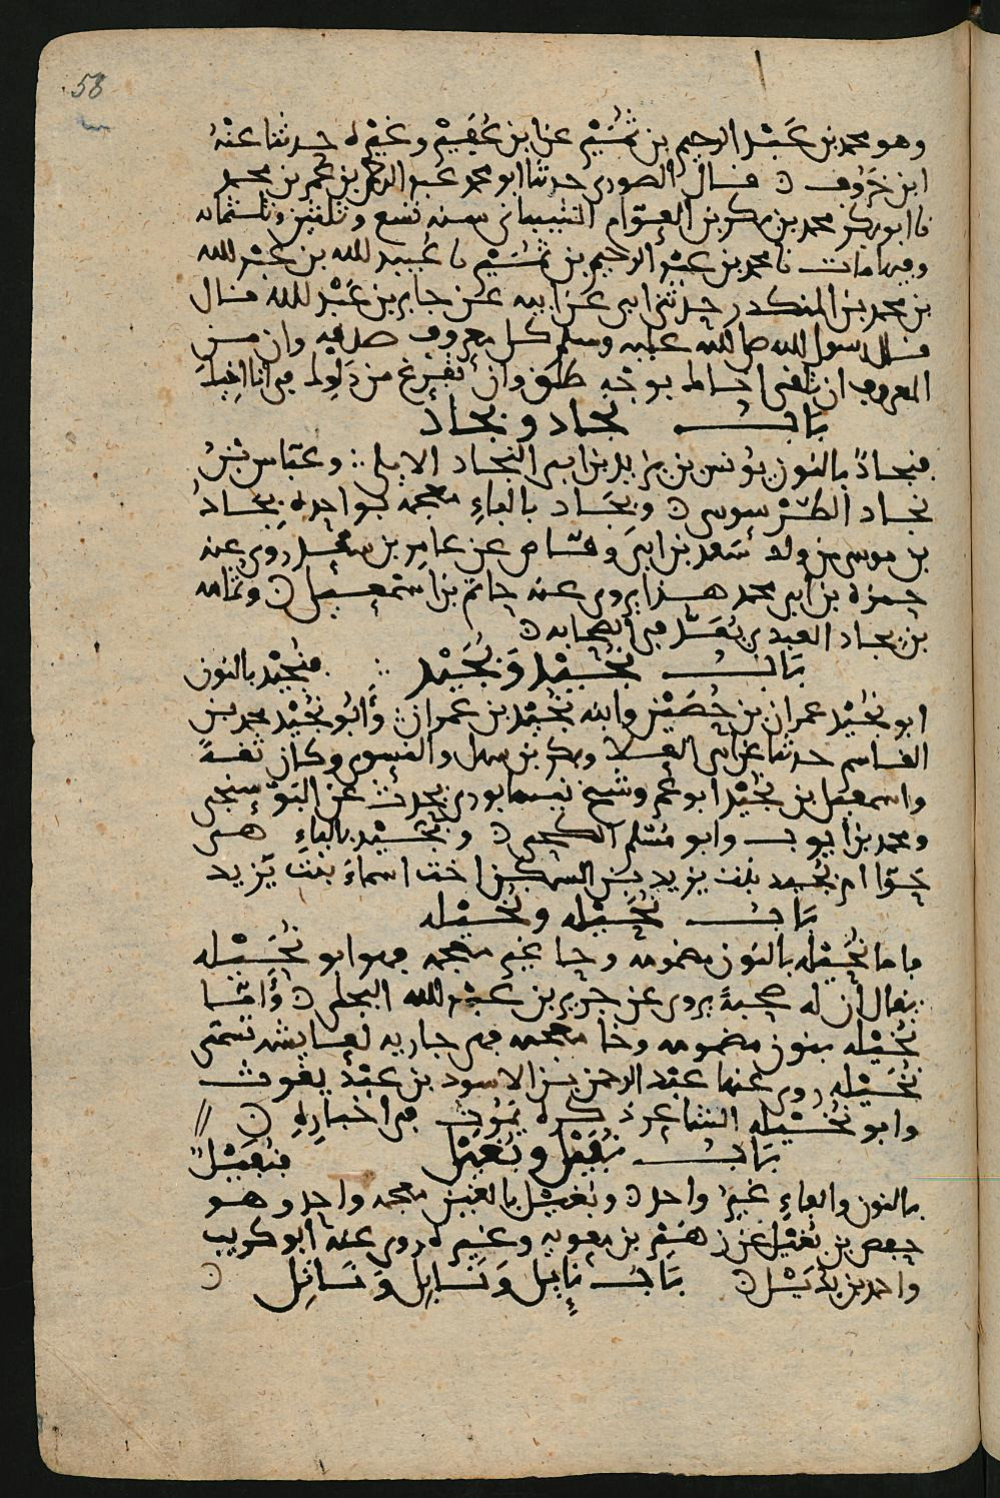 58
وهو محمد بن عبد الرحيم بن شبيب عن ابن عفير وغيره حدثنا عنه
ابن خروف قال الصوري حدثنا ابو محمد عبد الرحمن بن عمر بن محمد
نا ابو بكر محمد بن بكر بن العوام الشيباني سنه تسع وثلثين وثلثمايه
وفيها مات نا محمد بن عبد الرحيم بن نا عبيد الله بن عبد الله
بن محمد بن المنكدر حدثني ابي عن ابيه عن جابر بن عبد الله قال
قال رسول الله صلى الله عليه وسلم كل معروف صدقه وان من
المعروف ان تلقى اخاك بوجه طلق وان تفرغ من دلوك في انا اخيك
باب نجاد وبجاد
فنجاد بالنون يونس بن يزيد بن ابي النجاد الايلي وعباس بن
نجاد الطرسوسي وبجاد بالباء معجمه بواحده بجاد
بن موسى من ولد سعد بن ابي وقاص عن عامر بن سعد روى عنه
حمزه بن ابي محمد هذا يروي عنه حاتم بن اسمعيل وثمامه
بن بجاد العبدي يعد في الصحابه
باب نجيد وبجيد فنجيد بالنون
ابو نجيد عمران بن حصين وابنه نجيد بن عمران وابو نجيد محمد بن
القاسم حدثنا عن ابي العلا وبكر بن سهل والنسوي وكان ثقة
واسمعيل بن نجيد ابو عمرو شيخ نيسابوري يحدث عن البوسنجي
ومحمد بن ايوب وابو مسلم الكجي وبجيد بالباء هي
حوا ام بجيد بنت يزيد بن السكن اخت اسماء بنت يزيد
باب نحيله ونخيله
فاما نحيله بالنون مضمومه وحا غير معجمه فهو ابو نحيله
يقال ان له صحبة يروي عن جرير بن عبد الله البجلي واما
نخيله بنون مضمومه وخا معجمه فهي جاريه لعايشه تسمى
نخيله روى عنها عبد الرحمن بن الاسود بن عبد يغوث
وابو نخيله الشاعر ذكره يموت في اخباره
باب نفيل وبغيل فنفيل
بالنون والفاء غير واحد وبغيل بالغين معجمه واحد وهو
حفص بن بغيل عن زهير بن معويه وغيره روى عنه ابو كريب
واحمد بن بديل باب نايل ونابل وناتل